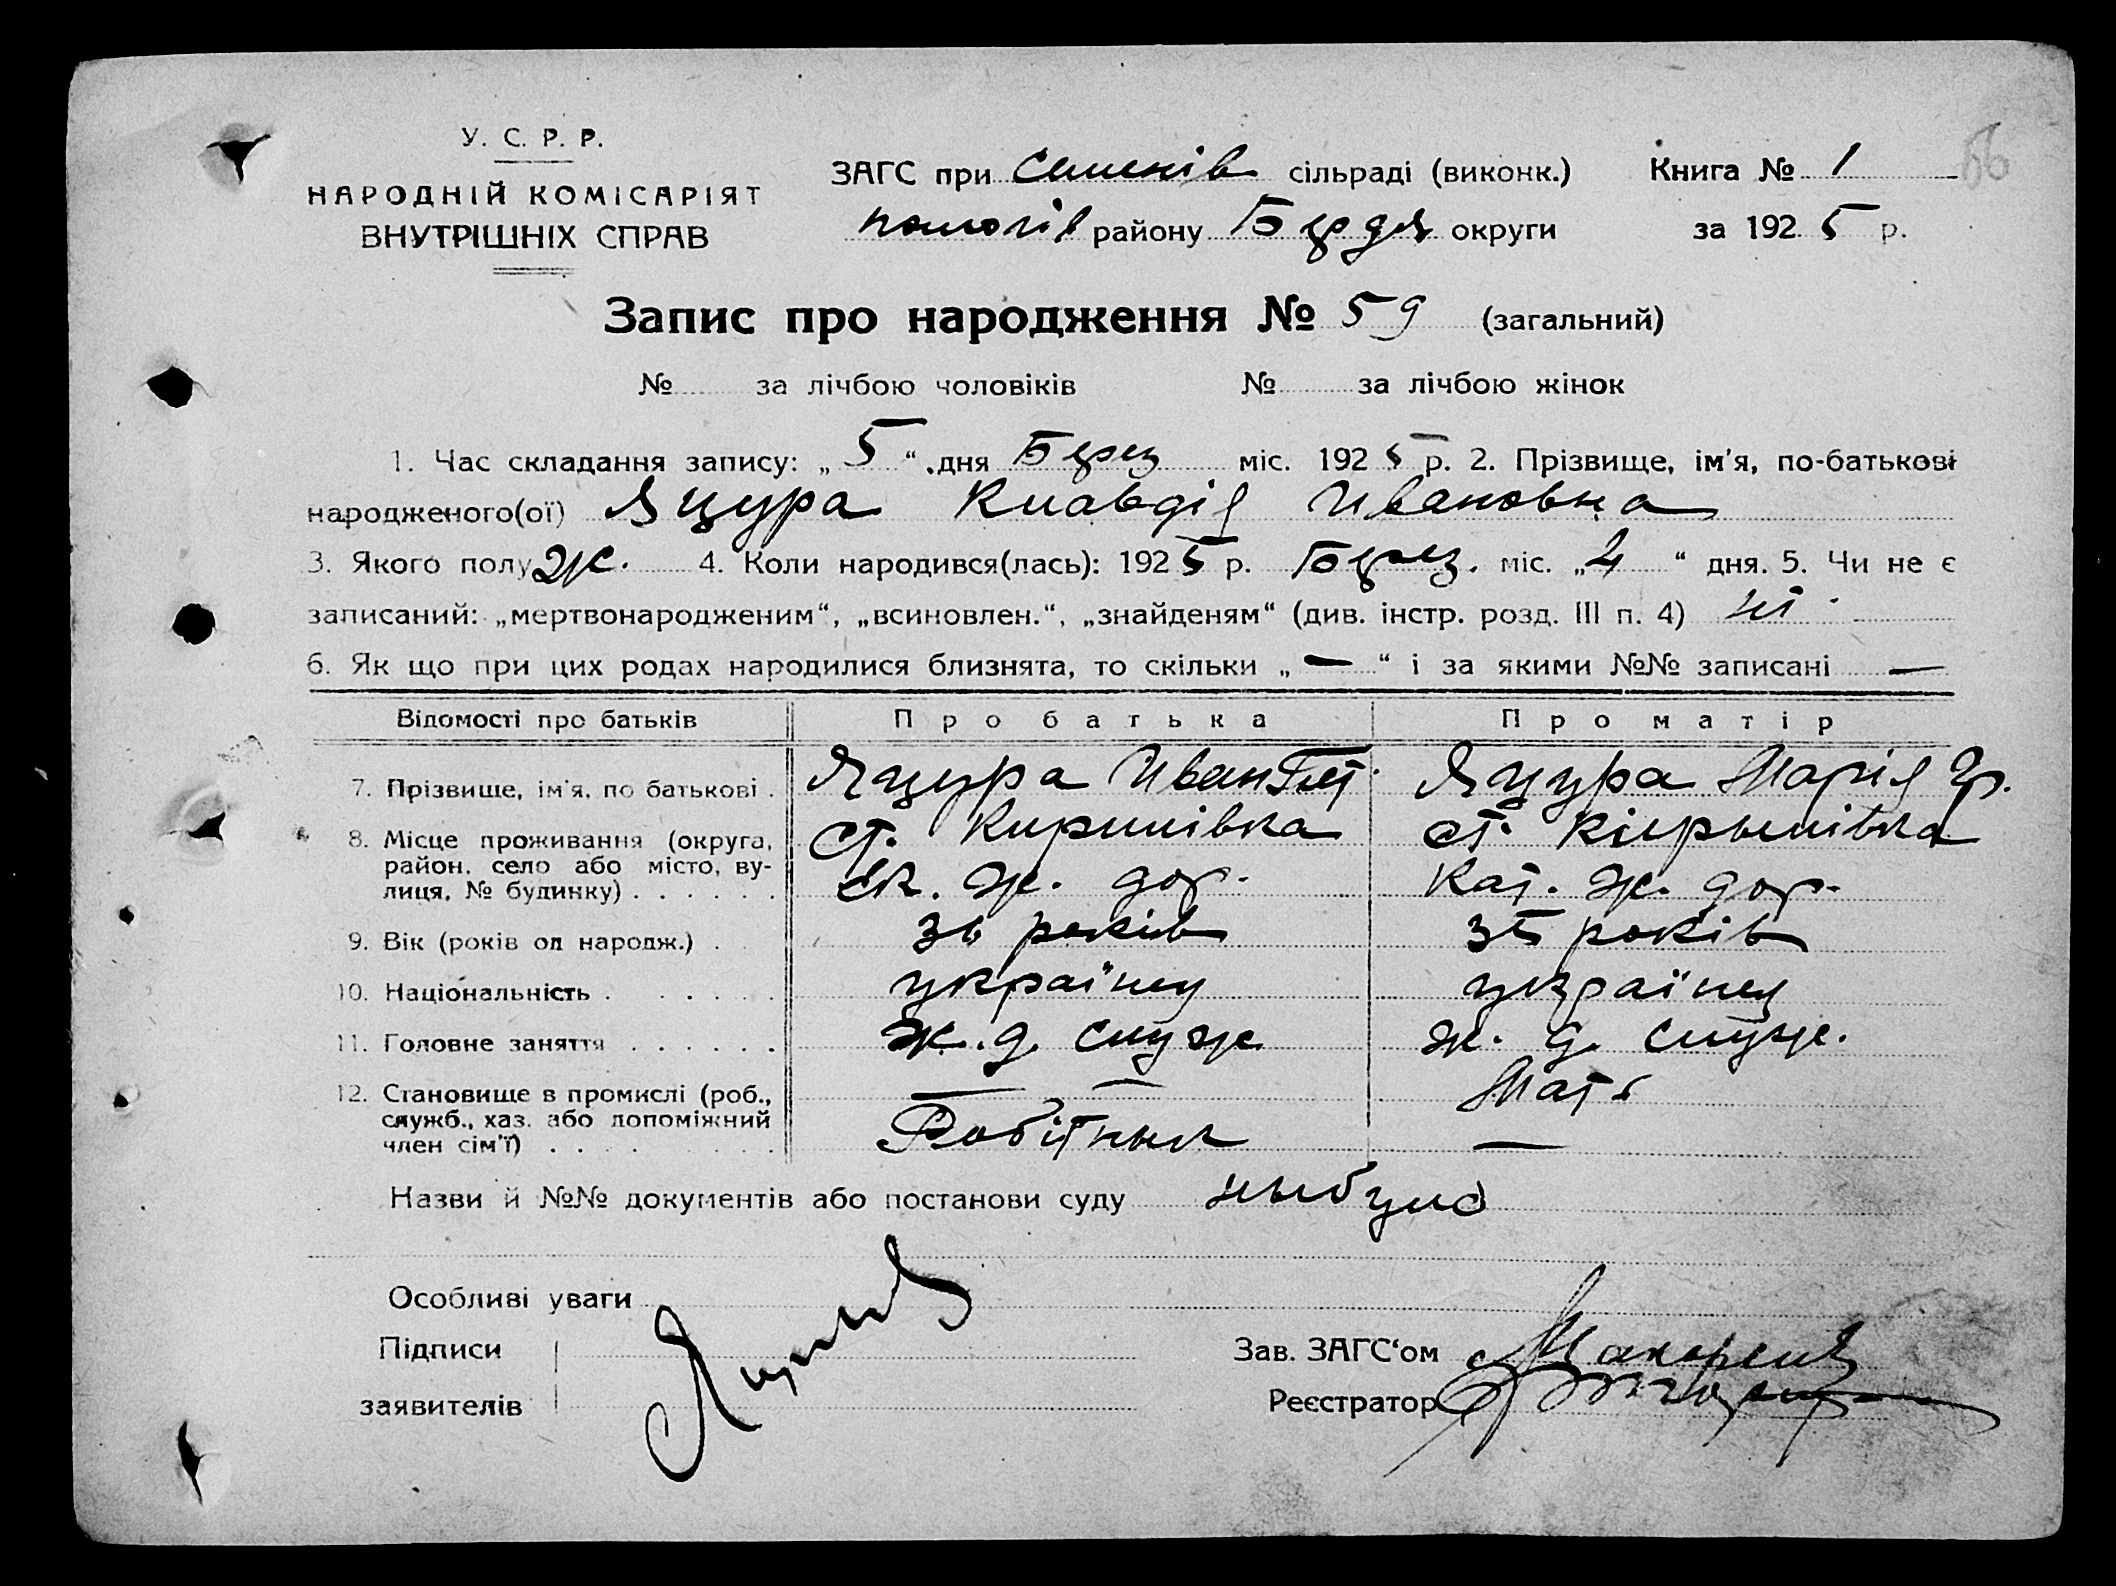 У. С. Р. Р.
НАРОДНІЙ КОМІСАРІЯТ
ВНУТРІШНІХ СПРАВ
ЗАГС при Семенів сільраді (виконк.) Книга № 1
пологів району Бердя округи за 1925 р.
66
Запис про народження № 59 (загальний)
№ за лічбою чоловіків № за лічбою жінок
1. Час складання запису: „ 5 “ дня Берез міс. 1925 р. 2. Прізвище, ім'я, по-батькові
народженого(ої) Яцура Клавдія Ивановна
3. Якого полу ж. 4. Коли народився(лась): 1925 р. Берез. міс. „ 4 “ дня. 5. Чи не є
записаний: „мертвонародженим“, „всиновлен.“, „знайденям“ (див. інстр. розд. III п. 4) ні
6. Як що при цих родах народилися близнята, то скільки „ — “ і за якими №№ записані —
Відомості про батьків Про батька Про матір
7. Прізвище, ім'я, по батькові . Яцура Иван Пет. Яцура Марія Гр.
8. Місце проживання (округа, район, село або місто, вулиця, № будинку) . . . . . .
ст. Кирилівка ст. Кірылівка
Ек. ж. дор. Кат. ж. дор.
9. Вік (років од народж.) . 36 років 35 років
10. Національність . . . . . . українец українец
11. Головне заняття . . . . . . ж. д. служ ж. д. служ.
12. Становище в промислі (роб., служб., хаз. або допоміжний член сім'ї) . . . . . .
— — Мать
Робітнык —
Назви й №№ документів або постанови суду ныбуло
Особливі уваги
Підписи
заявителів
Зав. ЗАГС‘ом Макаренко
Реєстратор